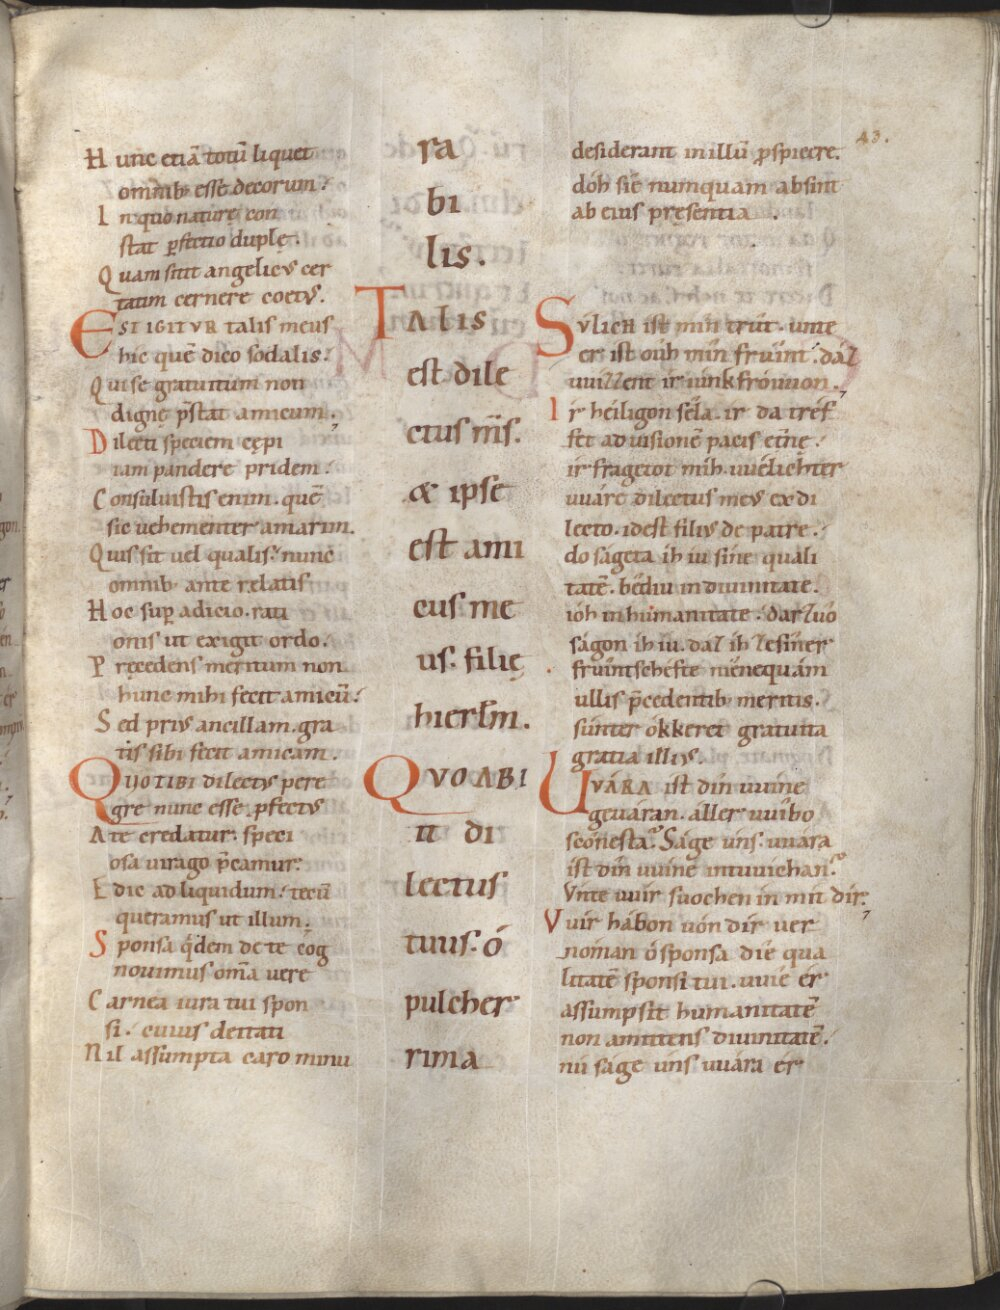 43.
Hunc etiā totū liquet
omnib; esse decorum.
In quo naturę con
stat ꝑfectio duplę.
Quam sitit angelicus cer
tatim cernere coetus.
EST IGITUR talis meus
hic quē dico sodalis.
Qui se gratuitum non
digne p̄stat amicum.
Dilecti speciem cępi
iam pandere pridem.
Consuluistis enim. quē
sic uehementer amarim.
Quis sit uel qualis. nunc
omnib; ante relatis
Hoc sup adicio. rati
onis ut exigit ordo.
Pręcedens meritum non
hunc mihi fecit amicū.
Sed prius ancillam. gra
tis sibi fecit amicam.
QUO TIBI dilectus pere
gre nunc esse ꝑfectus
Ate credatur. speci
osa uirago p̄camur.
Edic ad liquidum. tecū
queramus ut illum.
Sponsa qdem de te cog
nouimus om̄a uere
Carnea iura tui spon
si. cuius deitati
Nil assumpta caro minu
ra
bi
lis.
TALIS
est dile
ctus m̄s.
& ipse
est ami
cus me
us. filię
hierl̄m.
QUO ABI
it di
lectus
tuus. ó
pulcher
rima
desiderant in illū ꝓspicere.
dóh sie numquam absint
ab eius pręsentia.
SÚLICH ist min trût. unte
er ist oûh mîn frúint. daz
wizzent ir iunkfróuuon.
Ir héiligon sêla. ir da tréf
fet ad uisionē pacis et̄nę.
ir fragetot mih. uuélichter
uuáre dilectus meus ex di
lecto. id est filius de patre.
do ságeta ih iu sine quali
tatē. béidiu in diuinitate.
ióh in humanitate. dar zuó
ságon ih iu. daz ih ze sîner
frúintschefte niêne quám
ullis p̄cedentib; meritis.
súnter ókkeret gratuita
gratia illius.
UUÁRA ist dín uuíne
geuáran. áller uuíbo
scónesta. Ságe uns. uuára
ist dín uuíne intuuichan.
Unte uuir suochen in mit dir.
Vuir hábon uón dír ver
noman ó sponsa díe qua
litatē sponsi tui. uuíe ér
assumpsit humanitatē
non amittens diuinitatē.
nú ságe úns uuára ér